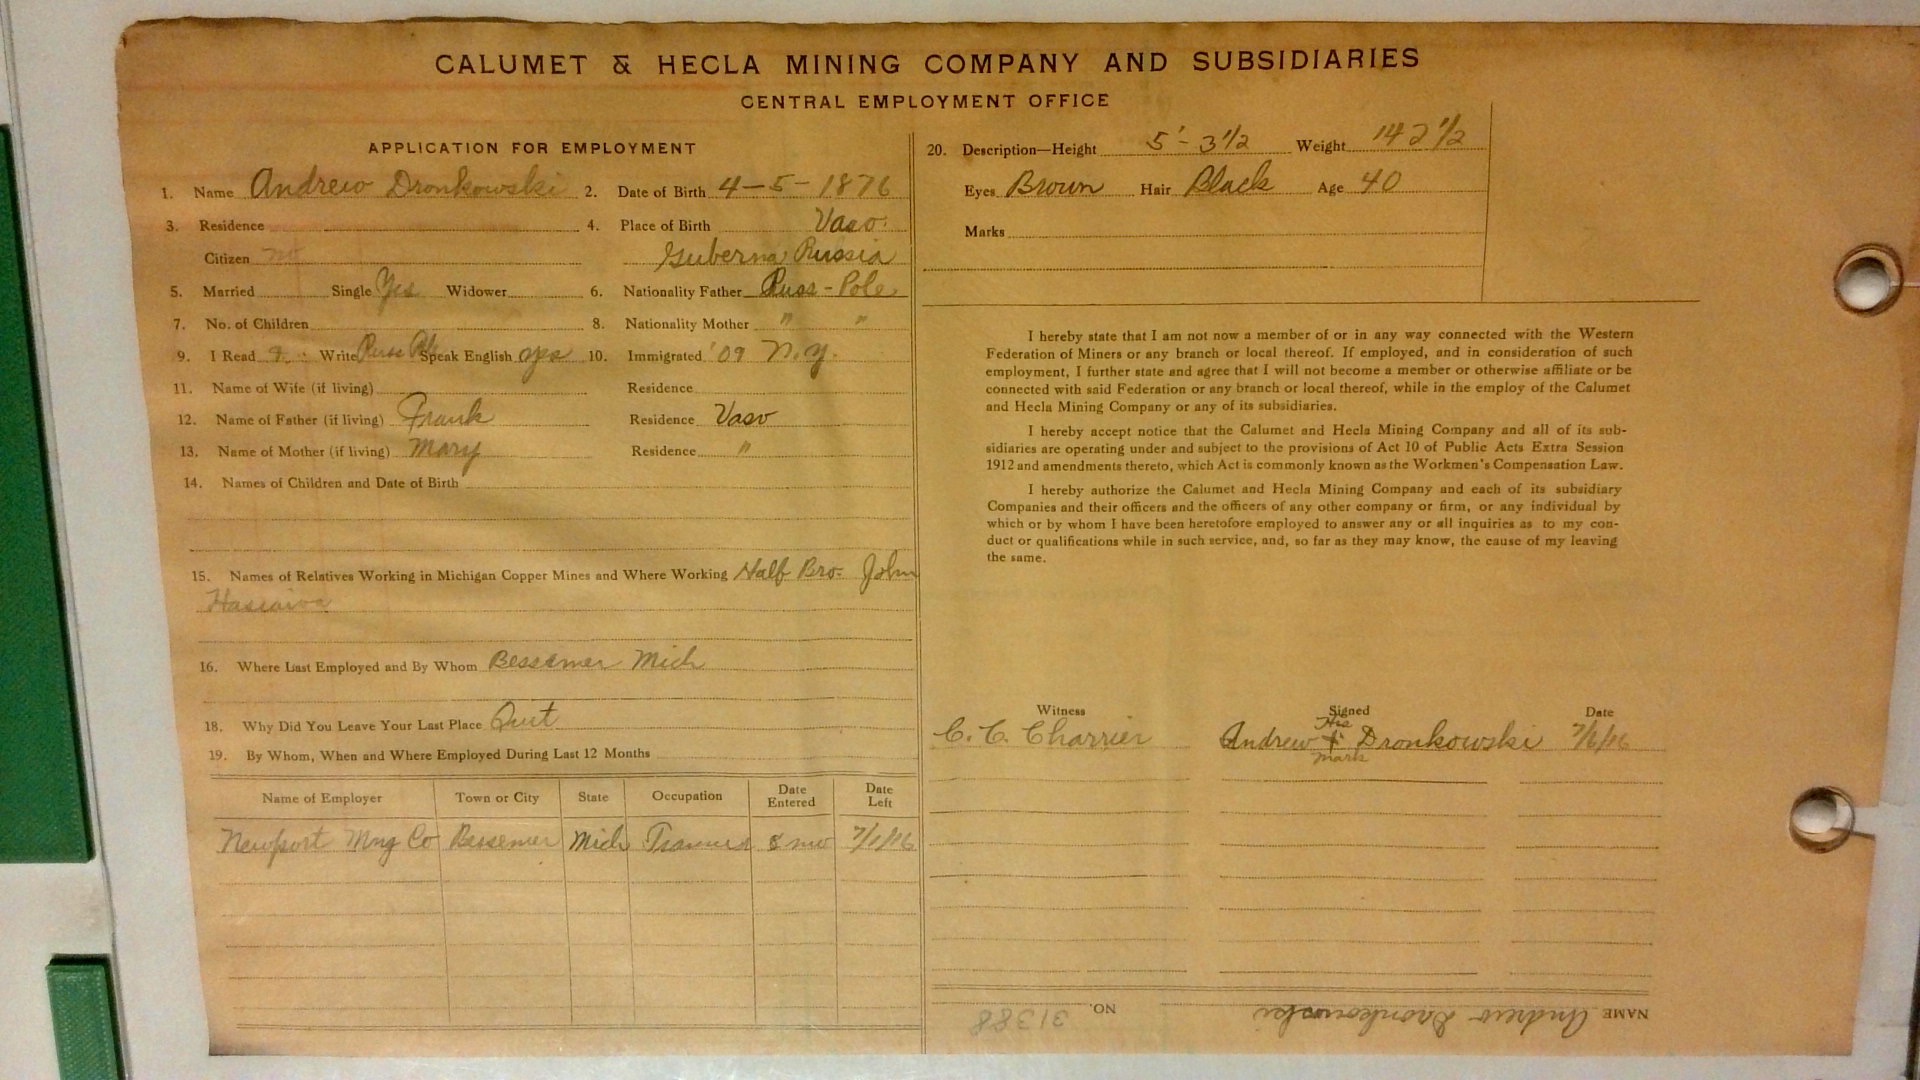 CALUMET & HECLA MINING COMPANY AND SUBSIDIARIES
CENTRAL EMPLOYMENT OFFICE
APPLICATION FOR EMPLOYMENT
1. Name Andrew Dronkowski 2. Date of Birth 4-5-1876
3. Residence 4. Place of Birth Vaso.
Citizen no Guberna Russia
5. Married Single Yes Widower 6. Nationality Father Russ-Pole
7. No. of Children 8. Nationality Mother " "
9. I Read Write Russ Pole Speak English yes 10. Immigrated '09 N.Y.
11. Name of Wife (if living) Residence
12. Name of Father (if living) Frank Residence Vaso
13. Name of Mother (if living) Mary Residence "
14. Names of Children and Date of Birth
15. Names of Relatives Working in Michigan Copper Mines and Where Working Half Bro. John
16. Where Last Employed and By Whom Bessemer Mich
18. Why Did You Leave Your Last Place Quit
19. By Whom, When and Where Employed During Last 12 Months
Name of Employer Town or City State Occupation Date Entered Date Left
Newport Mng Co Bessemer Mich Trammer 8 mo 7/1/16
20. Description—Height 5'-3 1/2 Weight 142 1/2
Eyes Brown Hair Black Age 40
Marks
I hereby state that I am not now a member of or in any way connected with the Western
Federation of Miners or any branch or local thereof. If employed, and in consideration of such
employment, I further state and agree that I will not become a member or otherwise affiliate or be
connected with said Federation or any branch or local thereof, while in the employ of the Calumet
and Hecla Mining Company or any of its subsidiaries.
I hereby accept notice that the Calumet and Hecla Mining Company and all of its sub-
sidiaries are operating under and subject to the provisions of Act 10 of Public Acts Extra Session
1912 and amendments thereto, which Act is commonly known as the Workmen's Compensation Law.
I hereby authorize the Calumet and Hecla Mining Company and each of its subsidiary
Companies and their officers and the officers of any other company or firm, or any individual by
which or by whom I have been heretofore employed to answer any or all inquiries as to my con-
duct or qualifications while in such service, and, so far as they may know, the cause of my leaving
the same.
Witness Signed Date
His
C. C. Charrier Andrew + Dronkowski 7/6/16
Mark
NAME Andrew Dronkowski NO. 31388